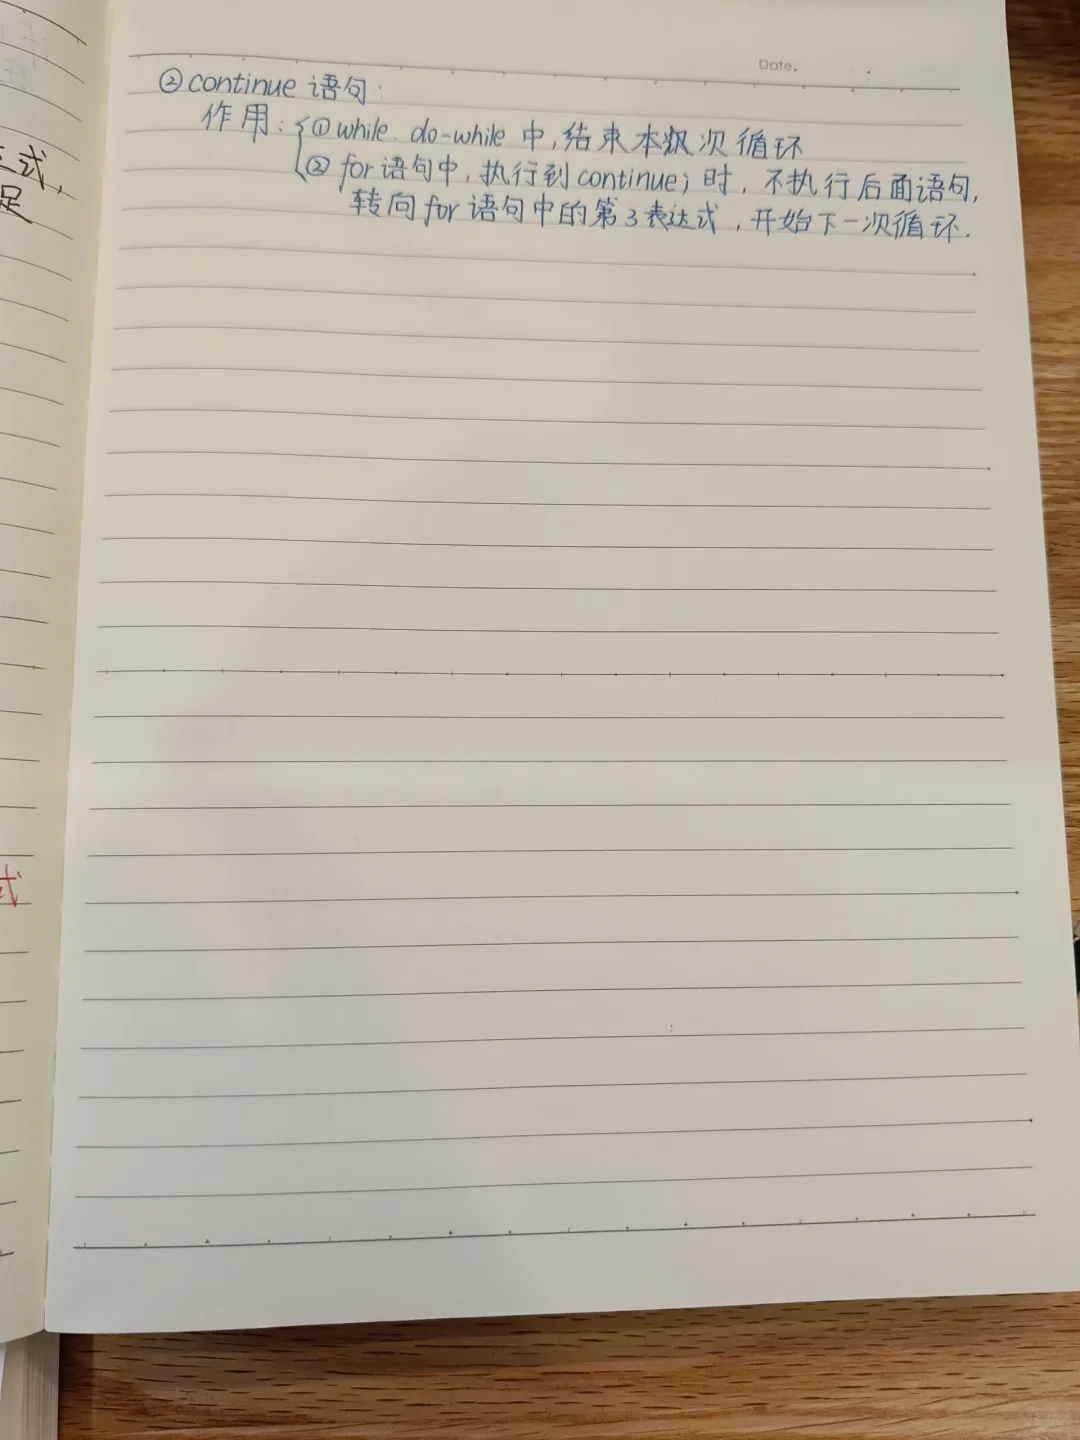 Date.
②continue 语句:
作用:①while. do-while 中,结束本次循环
②for语句中,执行到continue;时,不执行后面语句,
转向for语句中的第3表达式,开始下一次循环.
式,
足
式